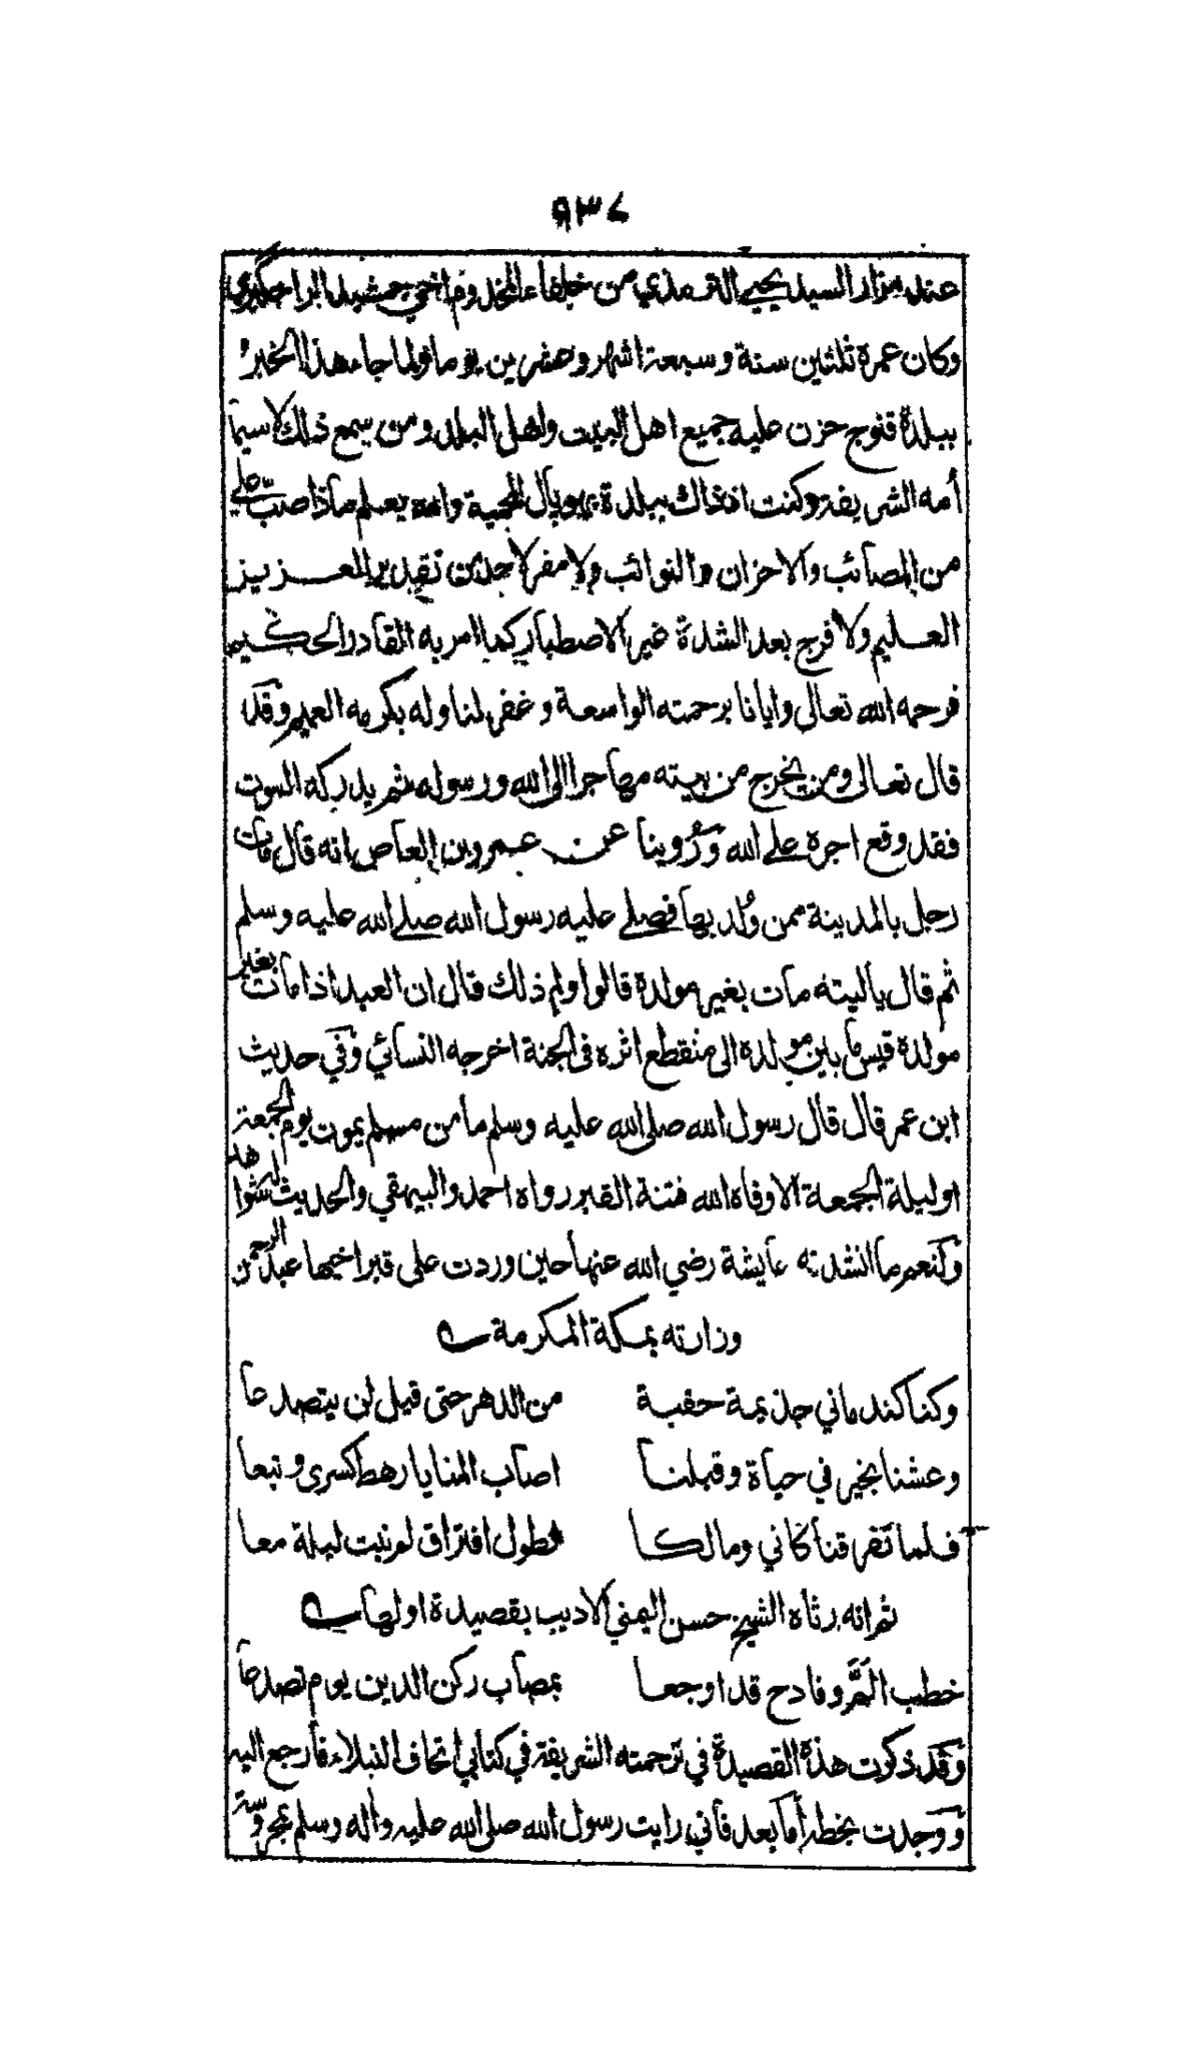 ٩٣٧
عند مزار السيد يحيى الترمذي من خلفاء المخدوم اخي جمشيد الراجگيري
وكان عمره ثلثين سنة وسبعة اشهر وعشرين يوما ولما جاء هذا الخبر
ببلدة قنوج حزن عليه جميع اهل البيت واهل البلد ومن سمع ذلك لاسيما
أمه الشريفة وكنت اذ ذاك ببلدة بهوپال المحمية والله يعلم ماذا صبّ علي
من المصائب والاحزان والنوائب ولا مفر لاحد من تقدير العزيز
العليم ولا فرج بعد الشدة غير الاصطبار كما امر به القادر الحكيم
فرحمه الله تعالى وايانا برحمته الواسعة وغفر لنا وله بكرمه العميم وقد
قال تعالى ومن يخرج من بيته مهاجرا الى الله ورسوله ثم يدركه الموت
فقد وقع اجره على الله ورُوينا عن عمرو بن العاص انه قال مات
رجل بالمدينة ممن وُلد بها فصلى عليه رسول الله صلى الله عليه وسلم
ثم قال ياليته مات بغير مولده قالوا ولم ذلك قال ان العبد اذا مات بغير
مولده قيس ما بين مولده الى منقطع اثره في الجنة اخرجه النسائي وفي حديث
ابن عمر قال قال رسول الله صلى الله عليه وسلم ما من مسلم يموت يوم الجمعة
او ليلة الجمعة الا وقاه الله فتنة القبر رواه احمد والبيهقي والحديث له شواهد
ولنعم ما انشدته عايشة رضي الله عنها حين وردت على قبر اخيها عبد الرحمن
وزارته بمكة المكرمة
وكنا كندماني جذيمة حقبة من الدهر حتى قيل لن يتصدعا
وعشنا بخير في حياة وقبلنا اصاب المنايا رهط كسرى وتبعا
فلما تفرقنا كاني ومالكا لطول افتراق لم نبت ليلة معا
ثم انه رثاه الشيخ حسن اليمني الاديب بقصيدة اولها
خطب المَّ وفادح قد اوجعا بمصاب ركن الدين يوم تصدعا
وقد ذكرت هذه القصيدة في ترجمته الشريفة في كتابي اتحاف النبلاء فارجع اليه
ووجدت بخطه أما بعد فاني رايت رسول الله صلى الله عليه واله وسلم